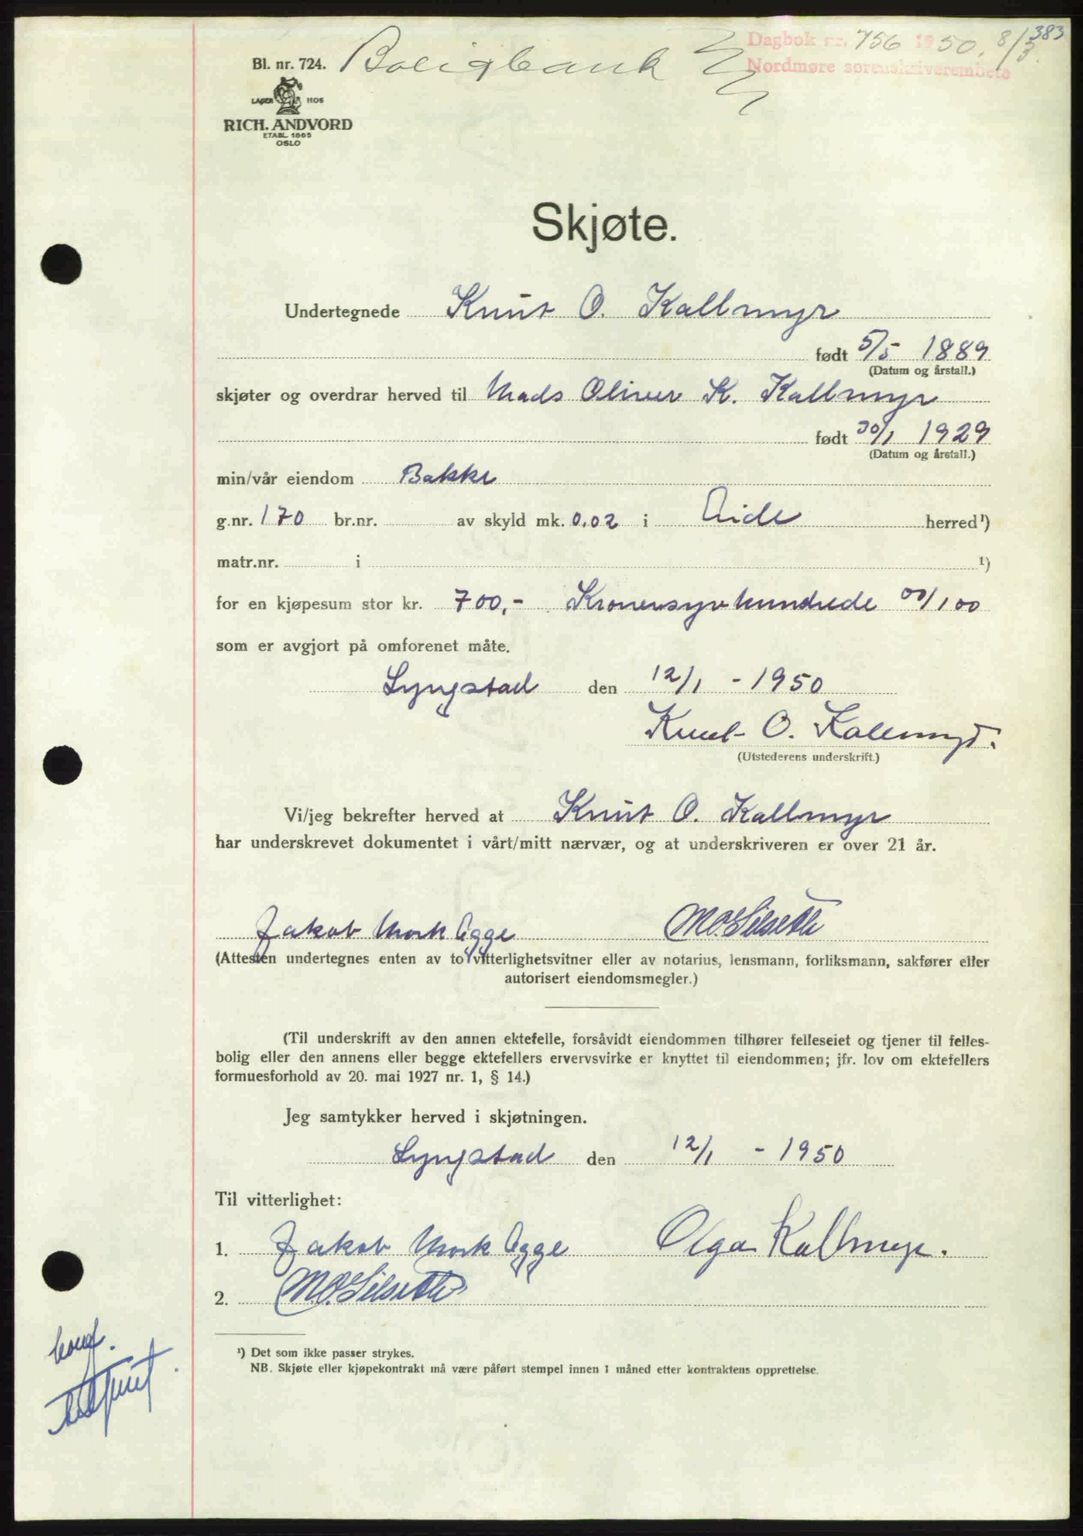 383
Dagbok nr. 756 1950. 8/3.
Nordmøre sorenskriverembete
Boligbank
Bl. nr. 724.
LAGER HOS
RICH. ANDVORD
ETABL. 1865
OSLO
Skjøte.
Undertegnede Knut O. Kallmyr
født 5/5 1889
(Datum og årstall.)
skjøter og overdrar herved til Mads Oliver K. Kallmyr
født 30/1 1929
(Datum og årstall.)
min/vår eiendom Bakke
g.nr. 170 br.nr. av skyld mk. 0.02 i Eide herred¹)
matr.nr. i ¹)
for en kjøpesum stor kr. 700,- Kronersyvhundrede 00/100
som er avgjort på omforenet måte.
Lyngstad den 12/1 - 1950
Knut O. Kallmyr.
(Utstederens underskrift.)
Vi/jeg bekrefter herved at Knut O. Kallmyr
har underskrevet dokumentet i vårt/mitt nærvær, og at underskriveren er over 21 år.
Jakob Mork Ugge M.O. Silseth
(Attesten undertegnes enten av to vitterlighetsvitner eller av notarius, lensmann, forliksmann, sakfører eller
autorisert eiendomsmegler.)
(Til underskrift av den annen ektefelle, forsåvidt eiendommen tilhører felleseiet og tjener til felles-
bolig eller den annens eller begge ektefellers ervervsvirke er knyttet til eiendommen; jfr. lov om ektefellers
formuesforhold av 20. mai 1927 nr. 1, § 14.)
Jeg samtykker herved i skjøtningen.
Lyngstad den 12/1 - 1950
Til vitterlighet:
1. Jakob Mork Ugge Olga Kallmyr.
2. M.O. Silseth
¹) Det som ikke passer strykes.
NB. Skjøte eller kjøpekontrakt må være påført stempel innen 1 måned etter kontraktens opprettelse.